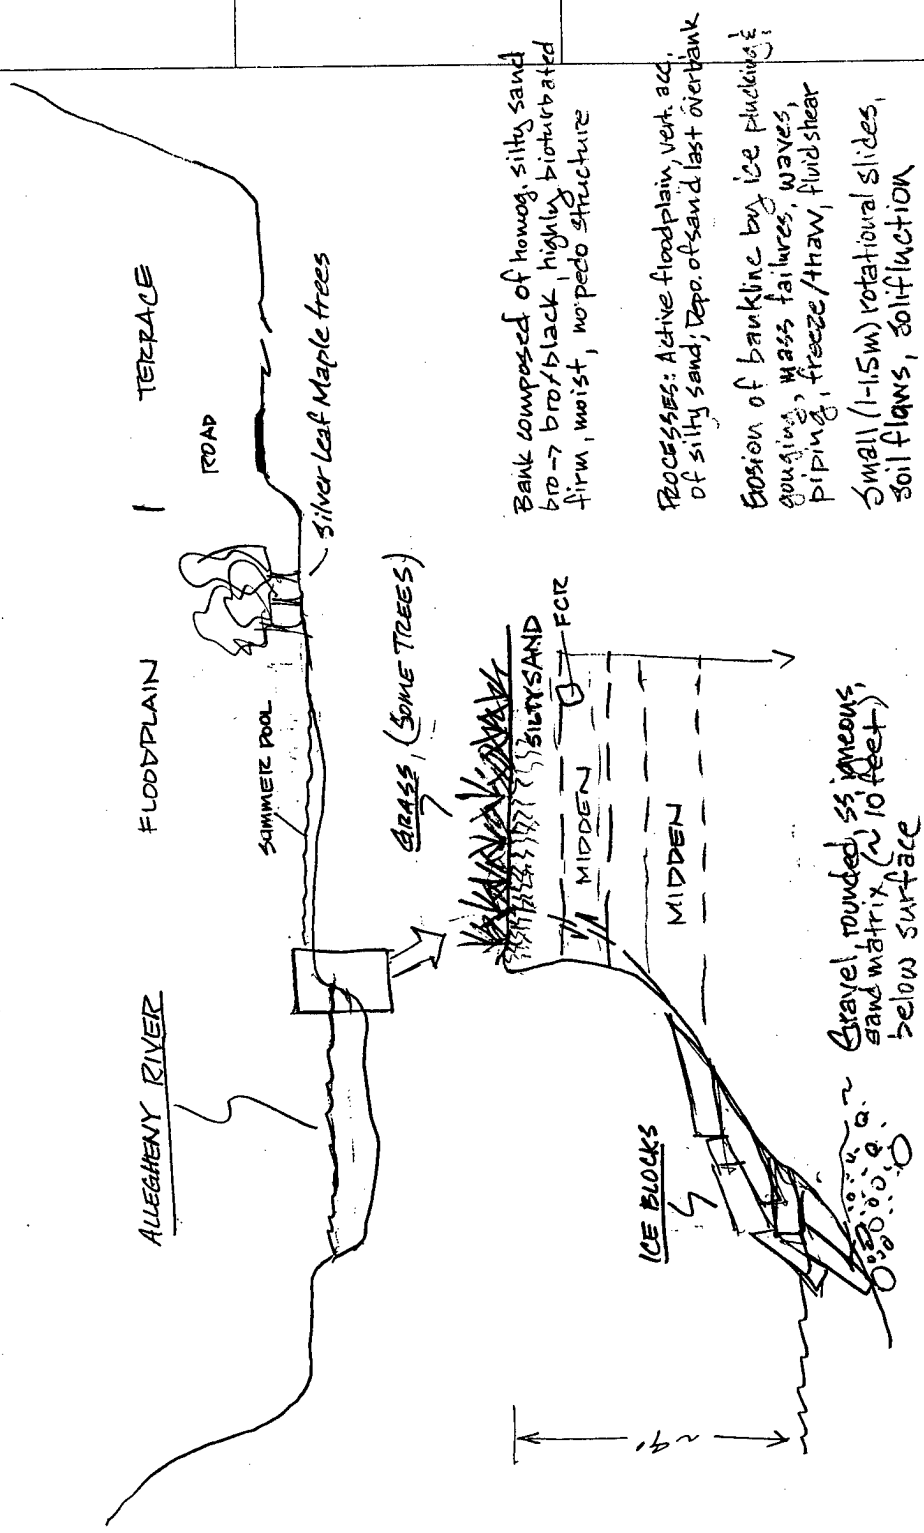 ALLEGHENY RIVER
FLOODPLAIN
TERRACE
SUMMER POOL
ROAD
Silver Leaf Maple trees
GRASS, (SOME TREES)
SILTY SAND
MIDDEN
FCR
MIDDEN
ICE BLOCKS
~9'
Gravel, rounded, ss, igneous,
sand matrix (~10 feet)
below surface
Bank composed of homog. silty sand
bro → bro/black, highly bioturbated
firm, moist, no pedo structure
PROCESSES: Active floodplain, vert. acc.
of silty sand; Depo. of sand last overbank
Erosion of bankline by ice plucking &
gouging, mass failures, waves,
piping, freeze/thaw, fluid shear
Small (1-1.5m) rotational slides,
soil flows, solifluction